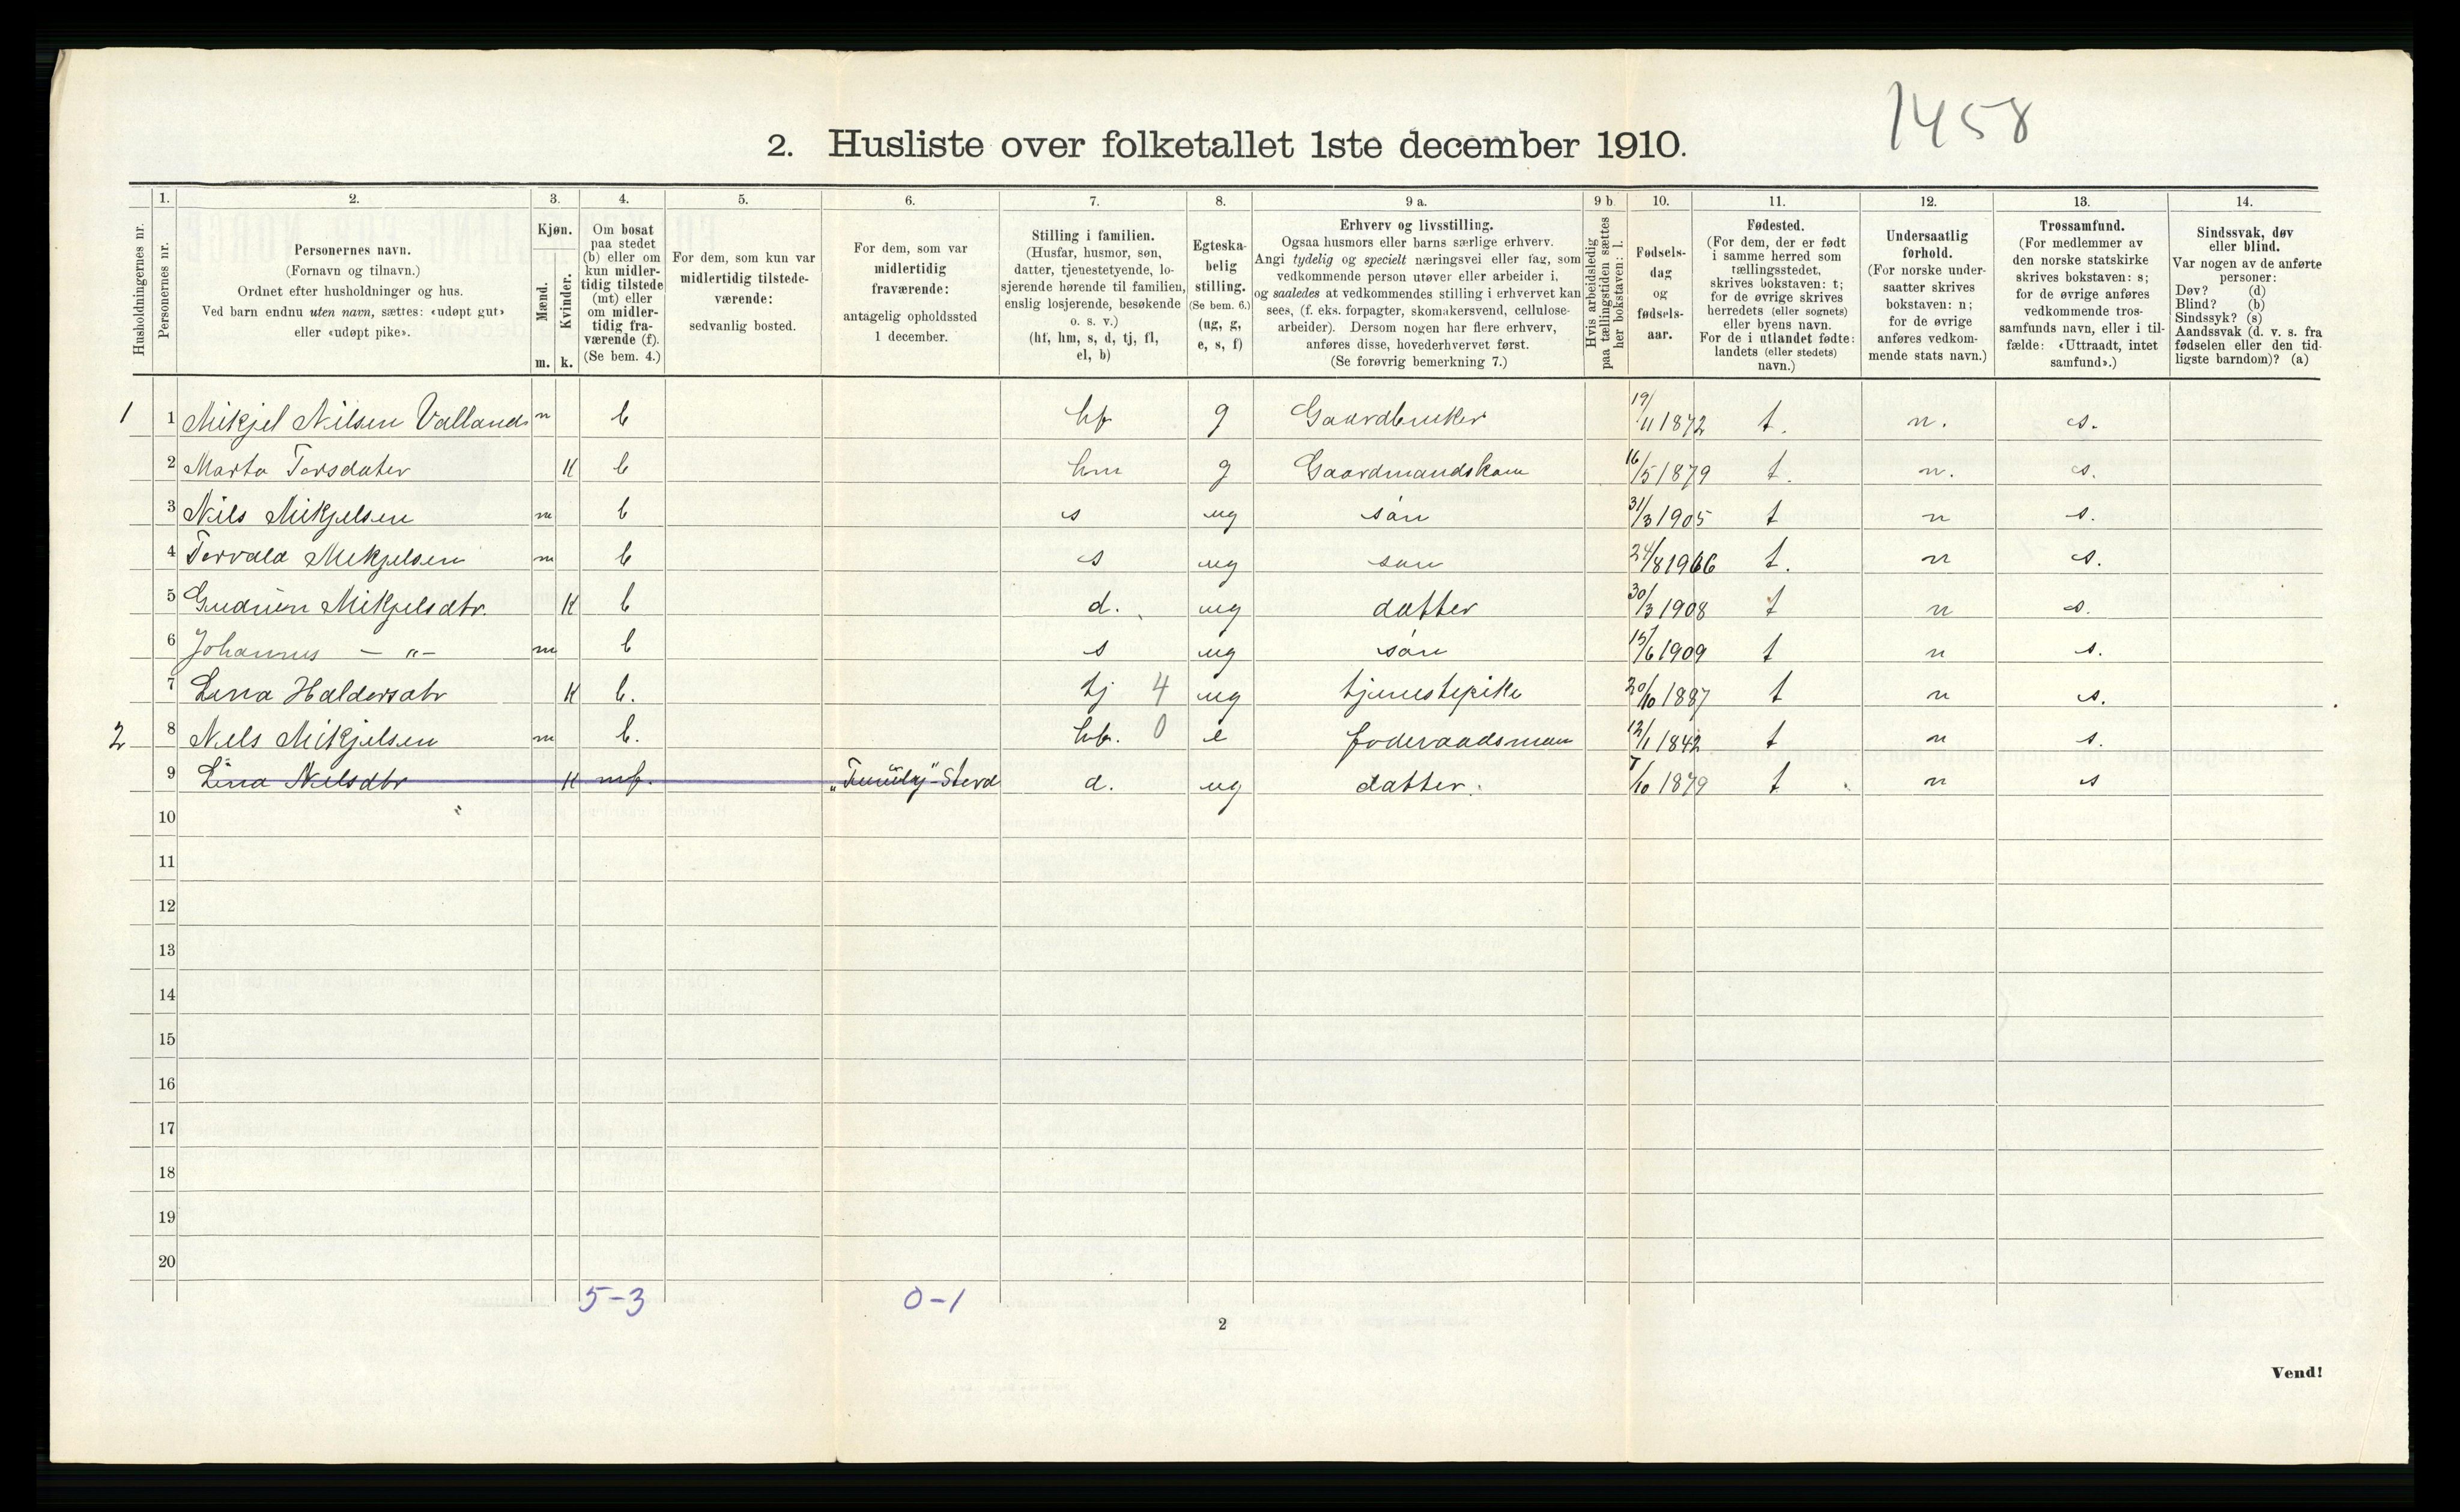 1458
2. Husliste over folketallet 1ste december 1910.
Husholdningernes nr.
1.
Personernes nr.
2.
Personernes navn.
(Fornavn og tilnavn.)
Ordnet efter husholdninger og hus.
Ved barn endnu uten navn, sættes: «udøpt gut»
eller «udøpt pike».
3.
Kjøn.
Mænd.
m.
Kvinder.
k.
4.
Om bosat
paa stedet
(b) eller om
kun midler-
tidig tilstede
(mt) eller
om midler-
tidig fra-
værende (f).
(Se bem. 4.)
5.
For dem, som kun var
midlertidig tilstede-
værende:
sedvanlig bosted.
6.
For dem, som var
midlertidig
fraværende:
antagelig opholdssted
1 december.
7.
Stilling i familien.
(Husfar, husmor, søn,
datter, tjenestetyende, lo-
sjerende hørende til familien,
enslig losjerende, besøkende
o. s. v.)
(hf, hm, s, d, tj, fl,
el, b)
8.
Egteska-
belig
stilling.
(Se bem. 6.)
(ug, g,
e, s, f)
9 a.
Erhverv og livsstilling.
Ogsaa husmors eller barns særlige erhverv.
Angi tydelig og specielt næringsvei eller fag, som
vedkommende person utøver eller arbeider i,
og saaledes at vedkommendes stilling i erhvervet kan
sees, (f. eks. forpagter, skomakersvend, cellulose-
arbeider). Dersom nogen har flere erhverv,
anføres disse, hovederhvervet først.
(Se forøvrig bemerkning 7.)
9 b
Hvis arbeidsledig
paa tællingstiden sættes
her bokstaven: l.
10.
Fødsels-
dag
og
fødsels-
aar.
11.
Fødested.
(For dem, der er født
i samme herred som
tællingsstedet,
skrives bokstaven: t;
for de øvrige skrives
herredets (eller sognets)
eller byens navn.
For de i utlandet fødte:
landets (eller stedets)
navn.)
12.
Undersaatlig
forhold.
(For norske under-
saatter skrives
bokstaven: n;
for de øvrige
anføres vedkom-
mende stats navn.)
13.
Trossamfund.
(For medlemmer av
den norske statskirke
skrives bokstaven: s;
for de øvrige anføres
vedkommende tros-
samfunds navn, eller i til-
fælde: «Uttraadt, intet
samfund».)
14.
Sindssvak, døv
eller blind.
Var nogen av de anførte
personer:
Døv? (d)
Blind? (b)
Sindssyk? (s)
Aandssvak (d. v. s. fra
fødselen eller den tid-
ligste barndom)? (a)
1 1 Mikjel Nilsen Valland m b hf g Gaardbruker 19/11 1872 t. n. s.
2 Marta Torsdater K b hm g Gaardmandskone 16/5 1879 t. n. s.
3 Nils Mikjelsen m b s ug sön 31/3 1905 t n s.
4 Torvald Mikjelsen m b s ug søn 24/8 1906 t. n s.
5 Gudrun Mikjelsdtr. K b d. ug datter 30/3 1908 t n s.
6 Johannes — "— m b s ug sön 15/6 1909 t n s.
7 Lena Haldorsdtr K b. tj 4 ug tjenestepike 20/10 1887 t n s.
2 8 Nels Mikjelsen m b. hf. 0 e foderaadsman 12/1 1842 t n s.
9 Lina Nelsdtr K mf. Stord d. ug datter. 7/10 1879 t n s
10
11
12
13
14
15
16
17
18
19
20
5-3 0-1
2
Vend!